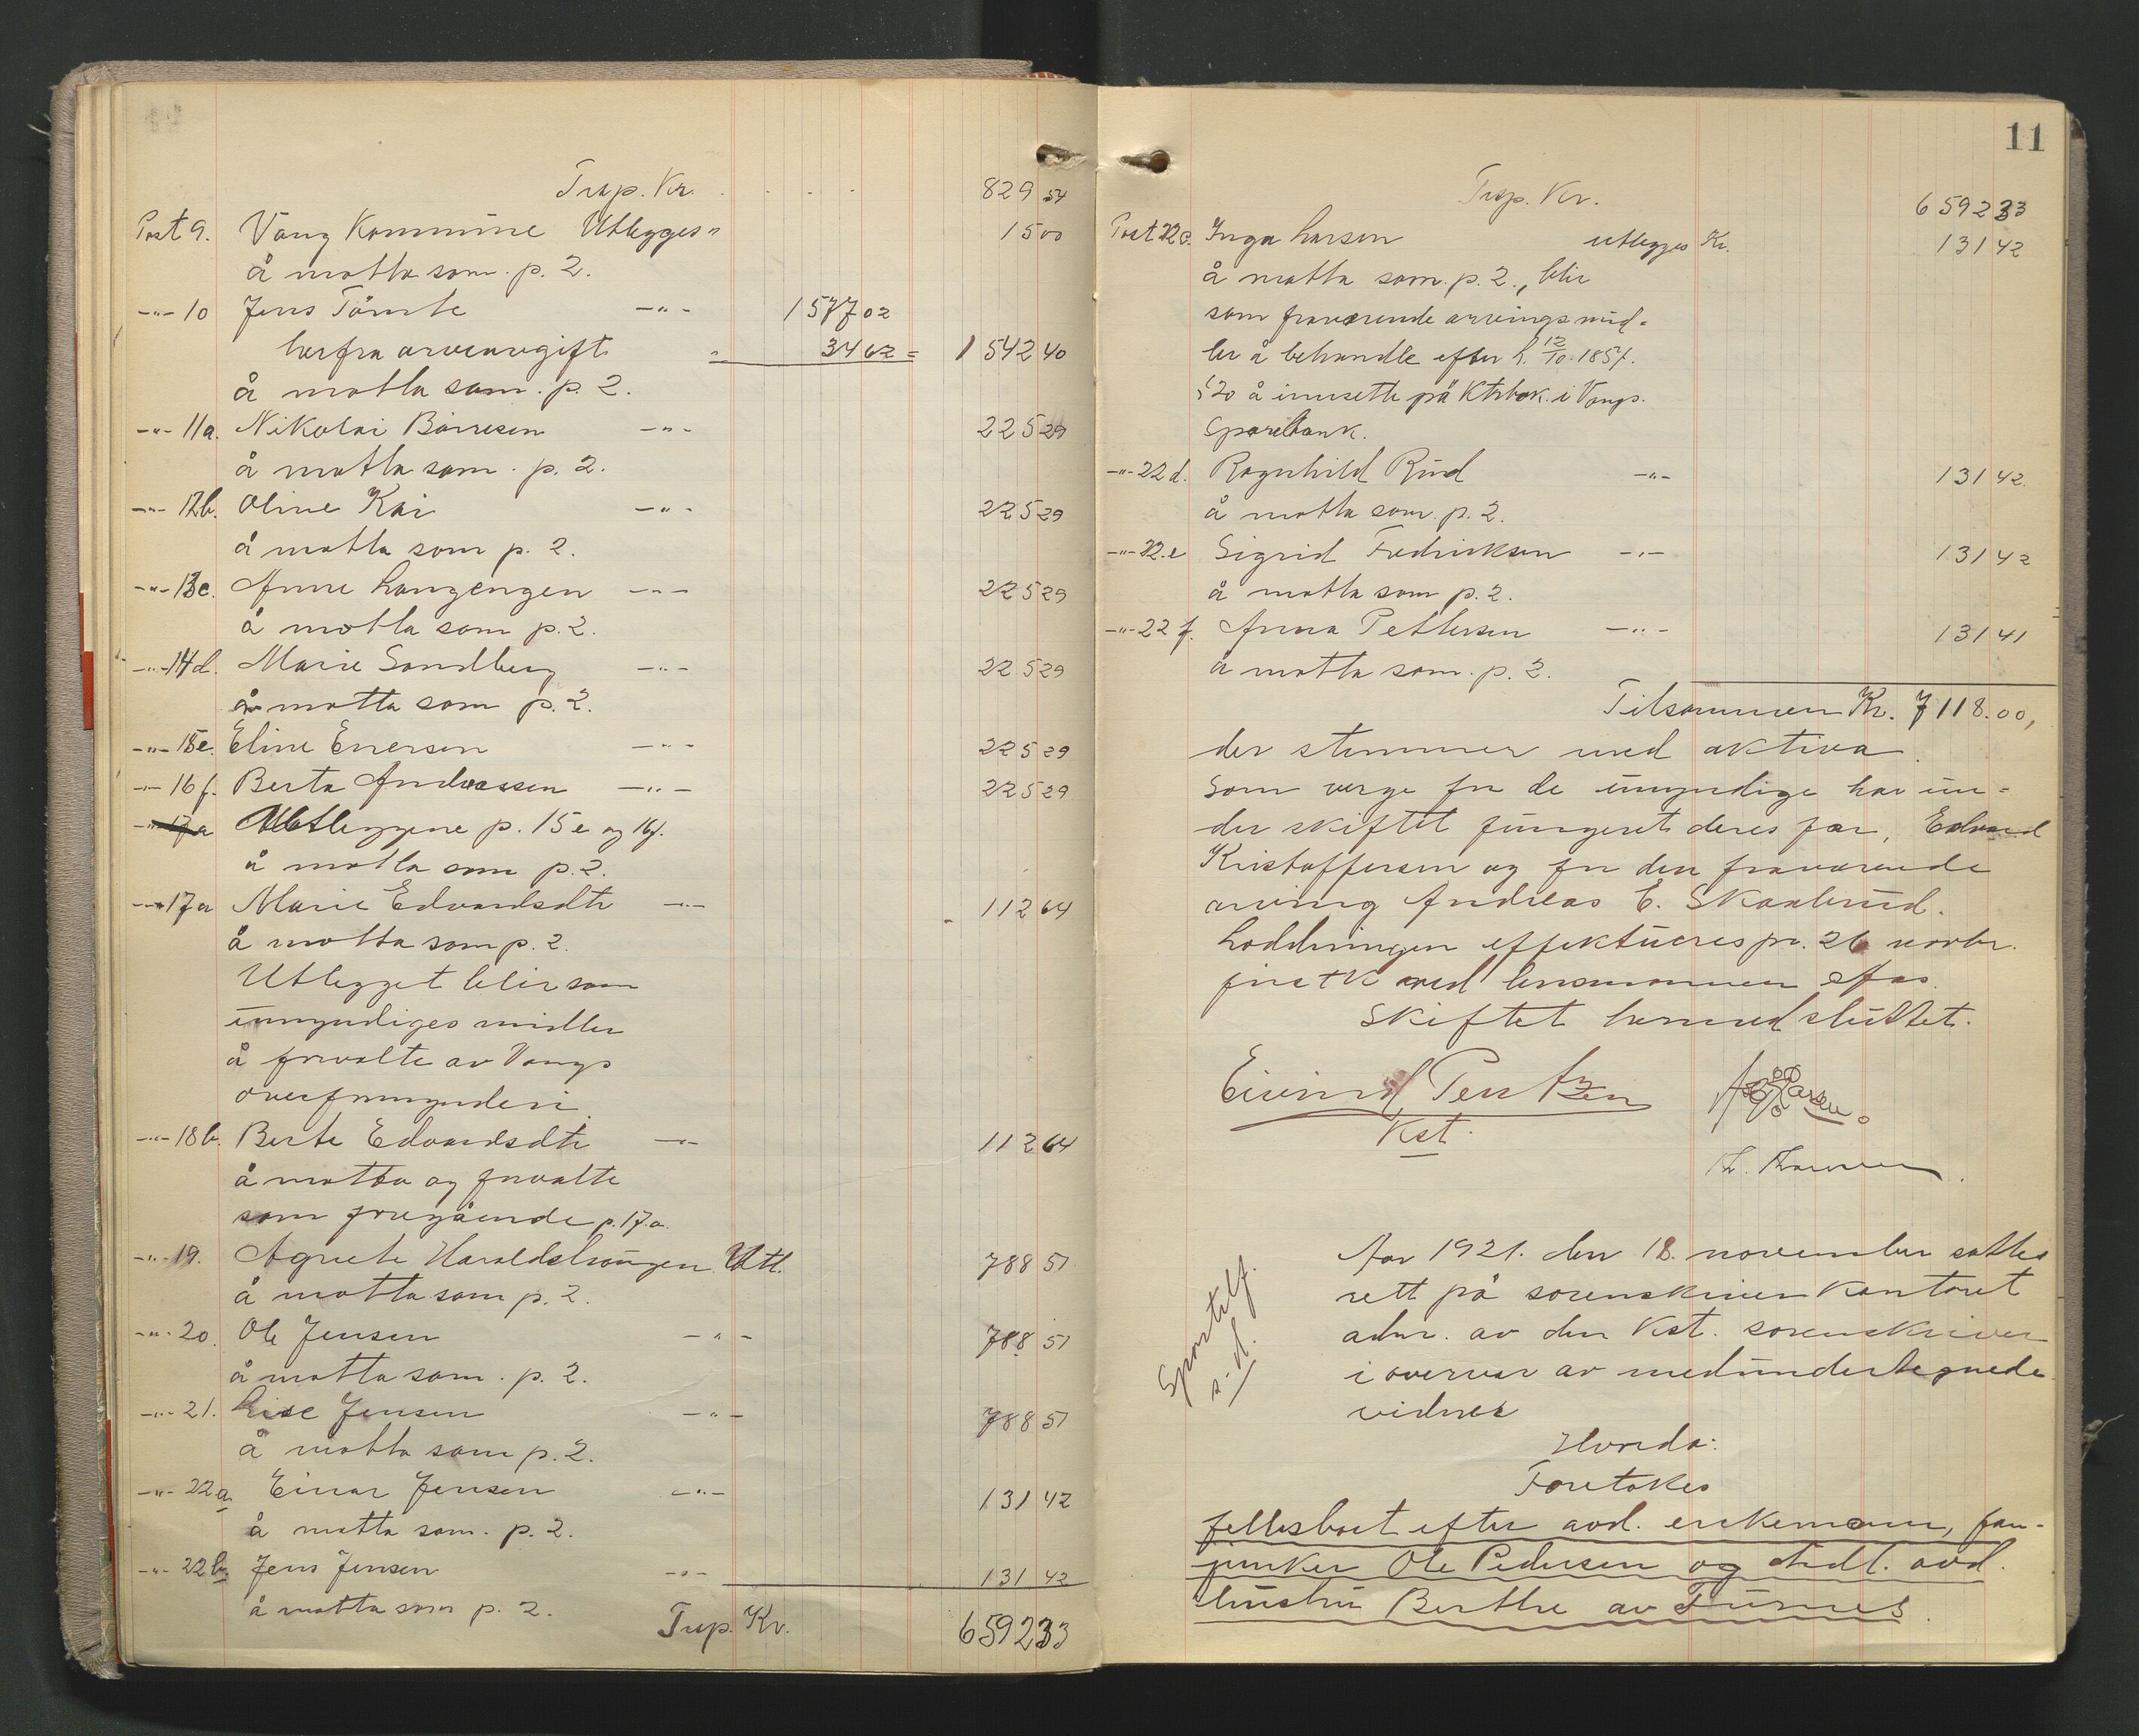 Trsp. Kr. . . . . 829 54
Post 9. Vang Kommune Utlegges " 15 00
å motta som p. 2.
-"- 10 Jens Tömte -"- 1577 02
herfra arveavgift " 34 62 = 1542 40
å motta som p. 2.
-"- 11a. Nikolai Börresen -"- 225 29
å motta som p. 2.
-"- 12b. Oline Kai -"- 225 29
å motta som p. 2.
-"- 13c. Anne Langengen -"- 225 29
å motta som p. 2.
-"- 14d. Marie Sandberg -"- 225 29
å motta som p. 2.
-"- 15e. Eline Enersen -"- 225 29
-"- 16f. Berta Andreassen -"- 225 29
-"- 17a Utleggene p. 15e og 16f.
å motta som p. 2.
-"- 17a Marie Edvardsdtr -"- 112 64
å motta som p. 2.
Utlegget blir som
umyndiges midler
å forvalte av Vangs
overformynderi.
-"- 18b. Berte Edvardsdtr -"- 112 64
å motta og forvalte
som foregående p. 17.a.
-"- 19. Agnete Haraldshaugen Utl. 788 51
å motta som p. 2.
-"- 20. Ole Jensen -"- 788 51
å motta som p. 2.
-"- 21. Lise Jensen -"- 788 51
å motta som p. 2.
-"- 22a. Einar Jensen -"- 131 42
å motta som p. 2.
-"- 22b. Jens Jensen -"- 131 42
å motta som p. 2.
Trsp. Kr. 6592 33
11
Trsp. Kr. 6592 33
Post 22c. Inga Larsen utlegges Kr. 131 42
å motta som p. 2., blir
som fraværende arvings mid-
ler å behandle efter l. 12/10.1857.
§20 å innsette på Ktrbok. i Vangs
Sparebank.
-"- 22d. Ragnhild Rud -"- 131 42
å motta som p. 2.
-"- 22.e Sigrid Fredriksen -"- 131 42
å motta som p. 2.
-"- 22f. Anna Pettersen -"- 131 41
å motta som p. 2.
Tilsammen Kr. 7118.00,
der stemmer med aktiva.
Som verge for de umyndige har un-
der skiftet fungeret deres far, Edvard
Kristoffersen og for den fraværende
arving Andreas E. Skaabrud.
Loddningen effektueres pr. 26 novbr.
førstk ved lensmannen
Skiftet hermed sluttet.
Eivind Pentzen
Kst.
Aar 1921. den 18. november sattes
rett på sorenskriver Kontoret
adm. av den Kst. sorenskriver
i overvær av medundertegnede
vidner
Sportelf.
s. d.
Hvorda:
Foretokes
fellesboet efter avd. enkemann, fan-
junker Ole Pedersen og tidl. avd.
hustru Berthe av Furnes.